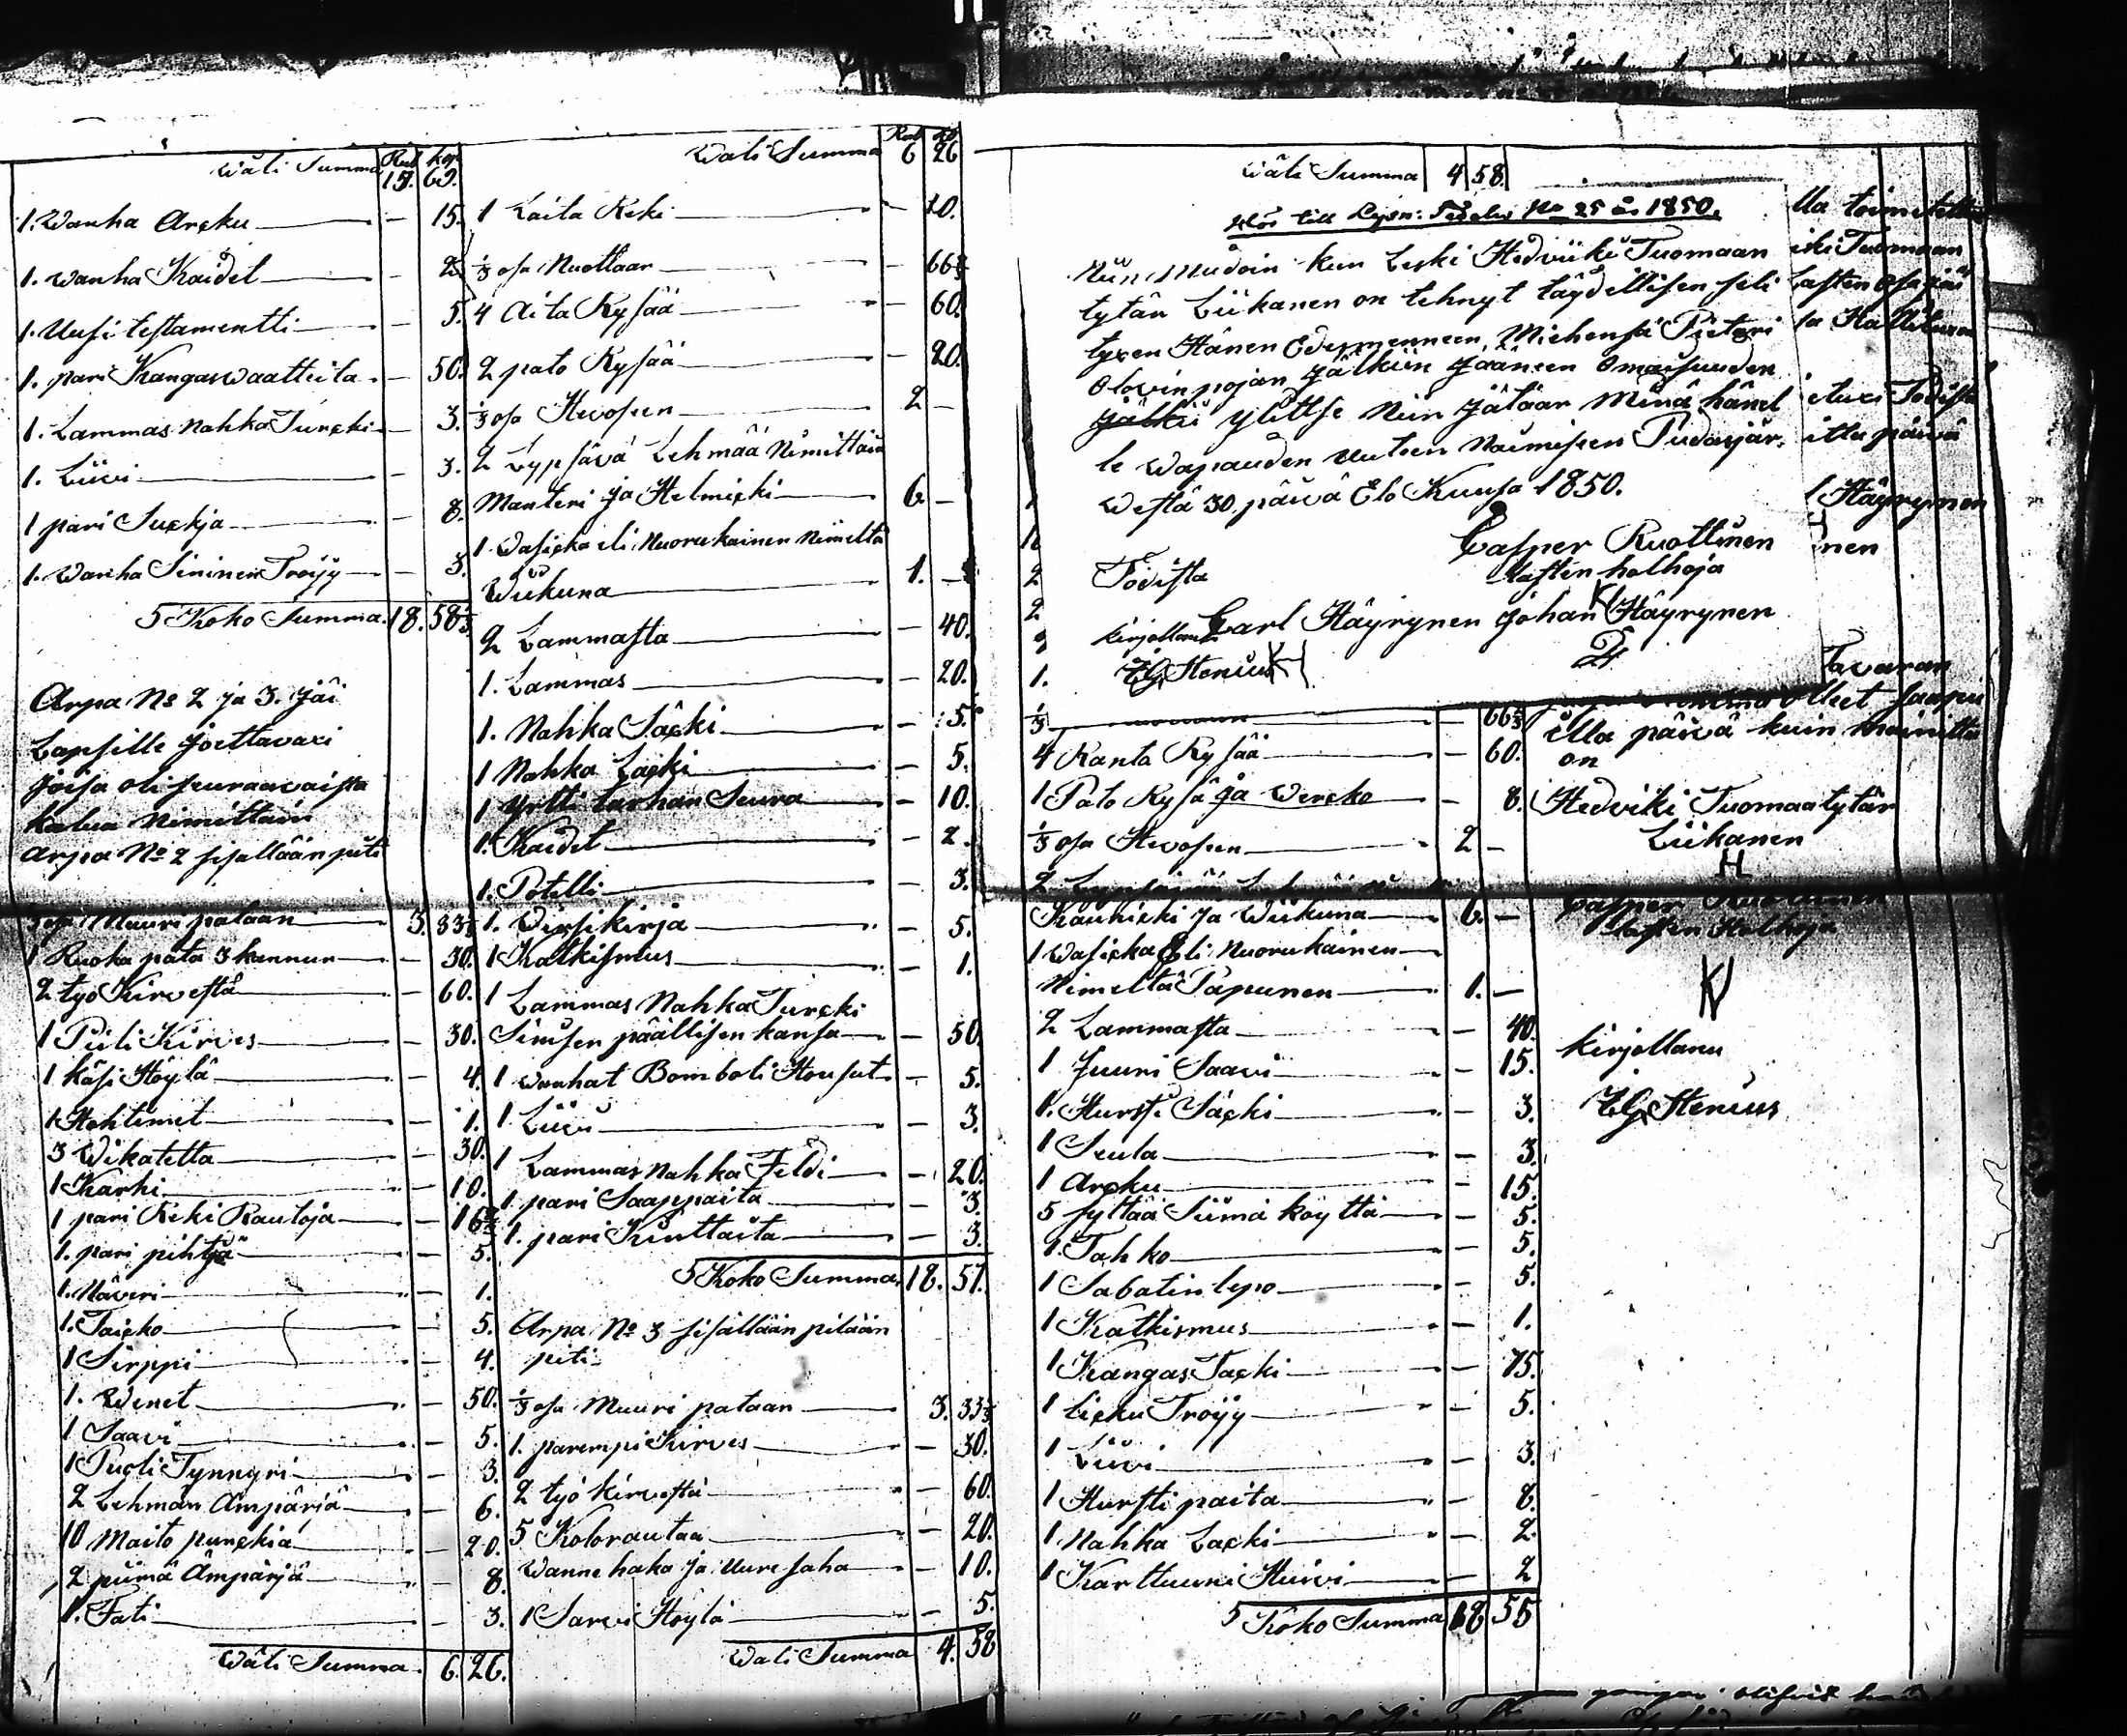 Wäli Summa Rub kop
19. 69.
1. Wanha Arcku — 15.
1. Wanha Kaidet — 2
1. Uusi testamentti — 5.
1. pari Kangaswaatteita — 50.
1. Lammas Nahka Turcki — 3.
1. Liivi — 3.
1 pari Suckja — 8.
1. Wanha Sininen Tröijy — 3.
5 Koko Summa. 18. 58⅓
Arpa No 2 ja 3. jäi
Lapsille joettavaxi
joisa oli seuraavaista
kalua Nimittäin
Arpa No 2 sisällään piti
⅓ osa Muuri pataan 3. 33⅓
1 Ruoka pata 3 kannun — 30.
2 työ Kirvestä — 60.
1 Piili Kirves — 30.
1 käsi Höylä — 4.
1 Hohtimet — 1.
3 Wikatetta — 30.
1 Karhi — 10.
1 pari Reki Rautoja — 16⅔
1. pari pihtjä — 5.
1. Näveri — 1.
1. Taicko — 5.
1 Sirppi — 4.
1. Wenet — 50.
1 Saavi — 5.
1 Puoli Tynnyri — 3.
2 Lehmän Ämpäriä — 6.
10 Maito punckia — 20.
2 piimä Ämpärjä — 8.
1. Fati — 3.
Wäli Summa 6. 26.
Wäli Summa Rub ko
6 26
1 Laita Reki — 10.
⅓ osa Nuottaan — 66⅔
4 Aita Rysää — 60.
2 pato Rysää — 20.
⅓ osa Hevosen 2 —
2 Lypsävä Lehmää Nimittäin
Manteri ja Helmicki 6 —
1. Wasicka eli Nuorukainen Nimeltä
Wiikuna 1. —
2 Lammasta — 40.
1. Lammas — 20.
1. Nahka Säcki — 5.
1 Nahka Lacki — 5.
1 Yrtti tarhan Seura — 10.
1. Kaidet — 2.
1. Potelli — 3.
1. Virsikirja — 5.
1 Katkismus — 1.
1 Lammas Nahka Turcki
Sinisen päällisen kansa — 50.
1 Wanhat Bomboli Housut — 5.
1 Liivi — 3.
1 Lammas Nahka Feldi — 20.
1. pari Saappaita — 3.
1. pari Kinttaita — 3.
5 Koko Summa 18. 57.
Arpa No 3 sisällään pitään
piti
⅓ osa Muuri pataan 3. 33⅓
1. parempi Kirves — 30.
2 työ kirvestä — 60.
5 Kolorautaa — 20.
Wanne haka ja Uure saha — 10.
1 Sarvi Höylä — 5.
Wäli Summa 4. 58
Wäli Summa 4 58.
No 25 år 1850.
Niin Muodoin kun Leski Hedviiki Tuomaan
tytär Liikanen on tehnyt täydellisen seli
tyxen Hänen Edesmenneen Miehensä Pietari
Olavinpojan jälkiin jääneen Omaisuuden
jälkii ylitse Niin jätään Minä hänel
le Wapauden uuteen Naimiseen Pudasjär,
westä 30. päivä Elo Kuusa 1850.
Casper Ruottinen
lasten holhoja
Todista
Carl Häyrynen Johan Häyrynen
kirjollanu
Elg. Stenius
lla toimitettu
iki Tuomaan
Lasten
Häyrynen
nen
Tavaran
⅓ — 66⅔
4 Ranta Rysää — 60.
1 Pato Rysä ja Wercko — 8.
⅓ osa Hevosen 2 —
2 Lypsävää Lehmää
Kaunicki ja Wiikuna 6. —
1 Wasicka Eli Nuorukainen
Nimeltä Papunen 1. —
2 Lammasta — 40.
1 Juuri Saavi — 15.
1. Hursti Säcki — 3.
1 Seula — 3.
1 Arcku — 15.
5 syltää Siima köyttä — 5.
1. Tahko — 5.
1 Sabatin lepo — 5.
1 Katkismus — 1.
1 Kangas Tacki — 75.
1 Licku Tröijy — 5.
1 Liivi — 3.
1 Hursti paita — 8.
1 Nahka Lacki — 2
1 Karttuuni Huivi — 2
5 Koko Summa 18 55
olleet saapu
illa päivä kuin mainittu
on
Hedviki Tuomaatytär
Liikanen
H
Casper Ruottinen
lasten Holhoja
kirjollanu
Elg. Stenius